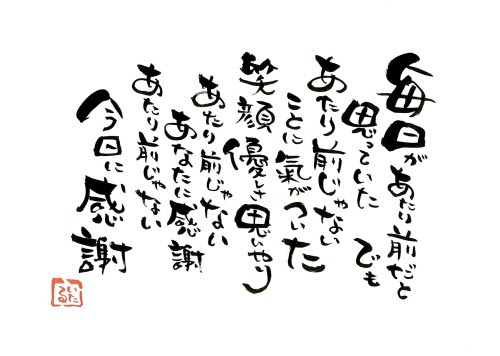 毎日があたり前だと
思っていた でも
あたり前じゃない
ことに氣がついた
笑顔 優しさ 思いやり
あたり前じゃない
あなたに感謝
あたり前じゃない
今日に、感謝